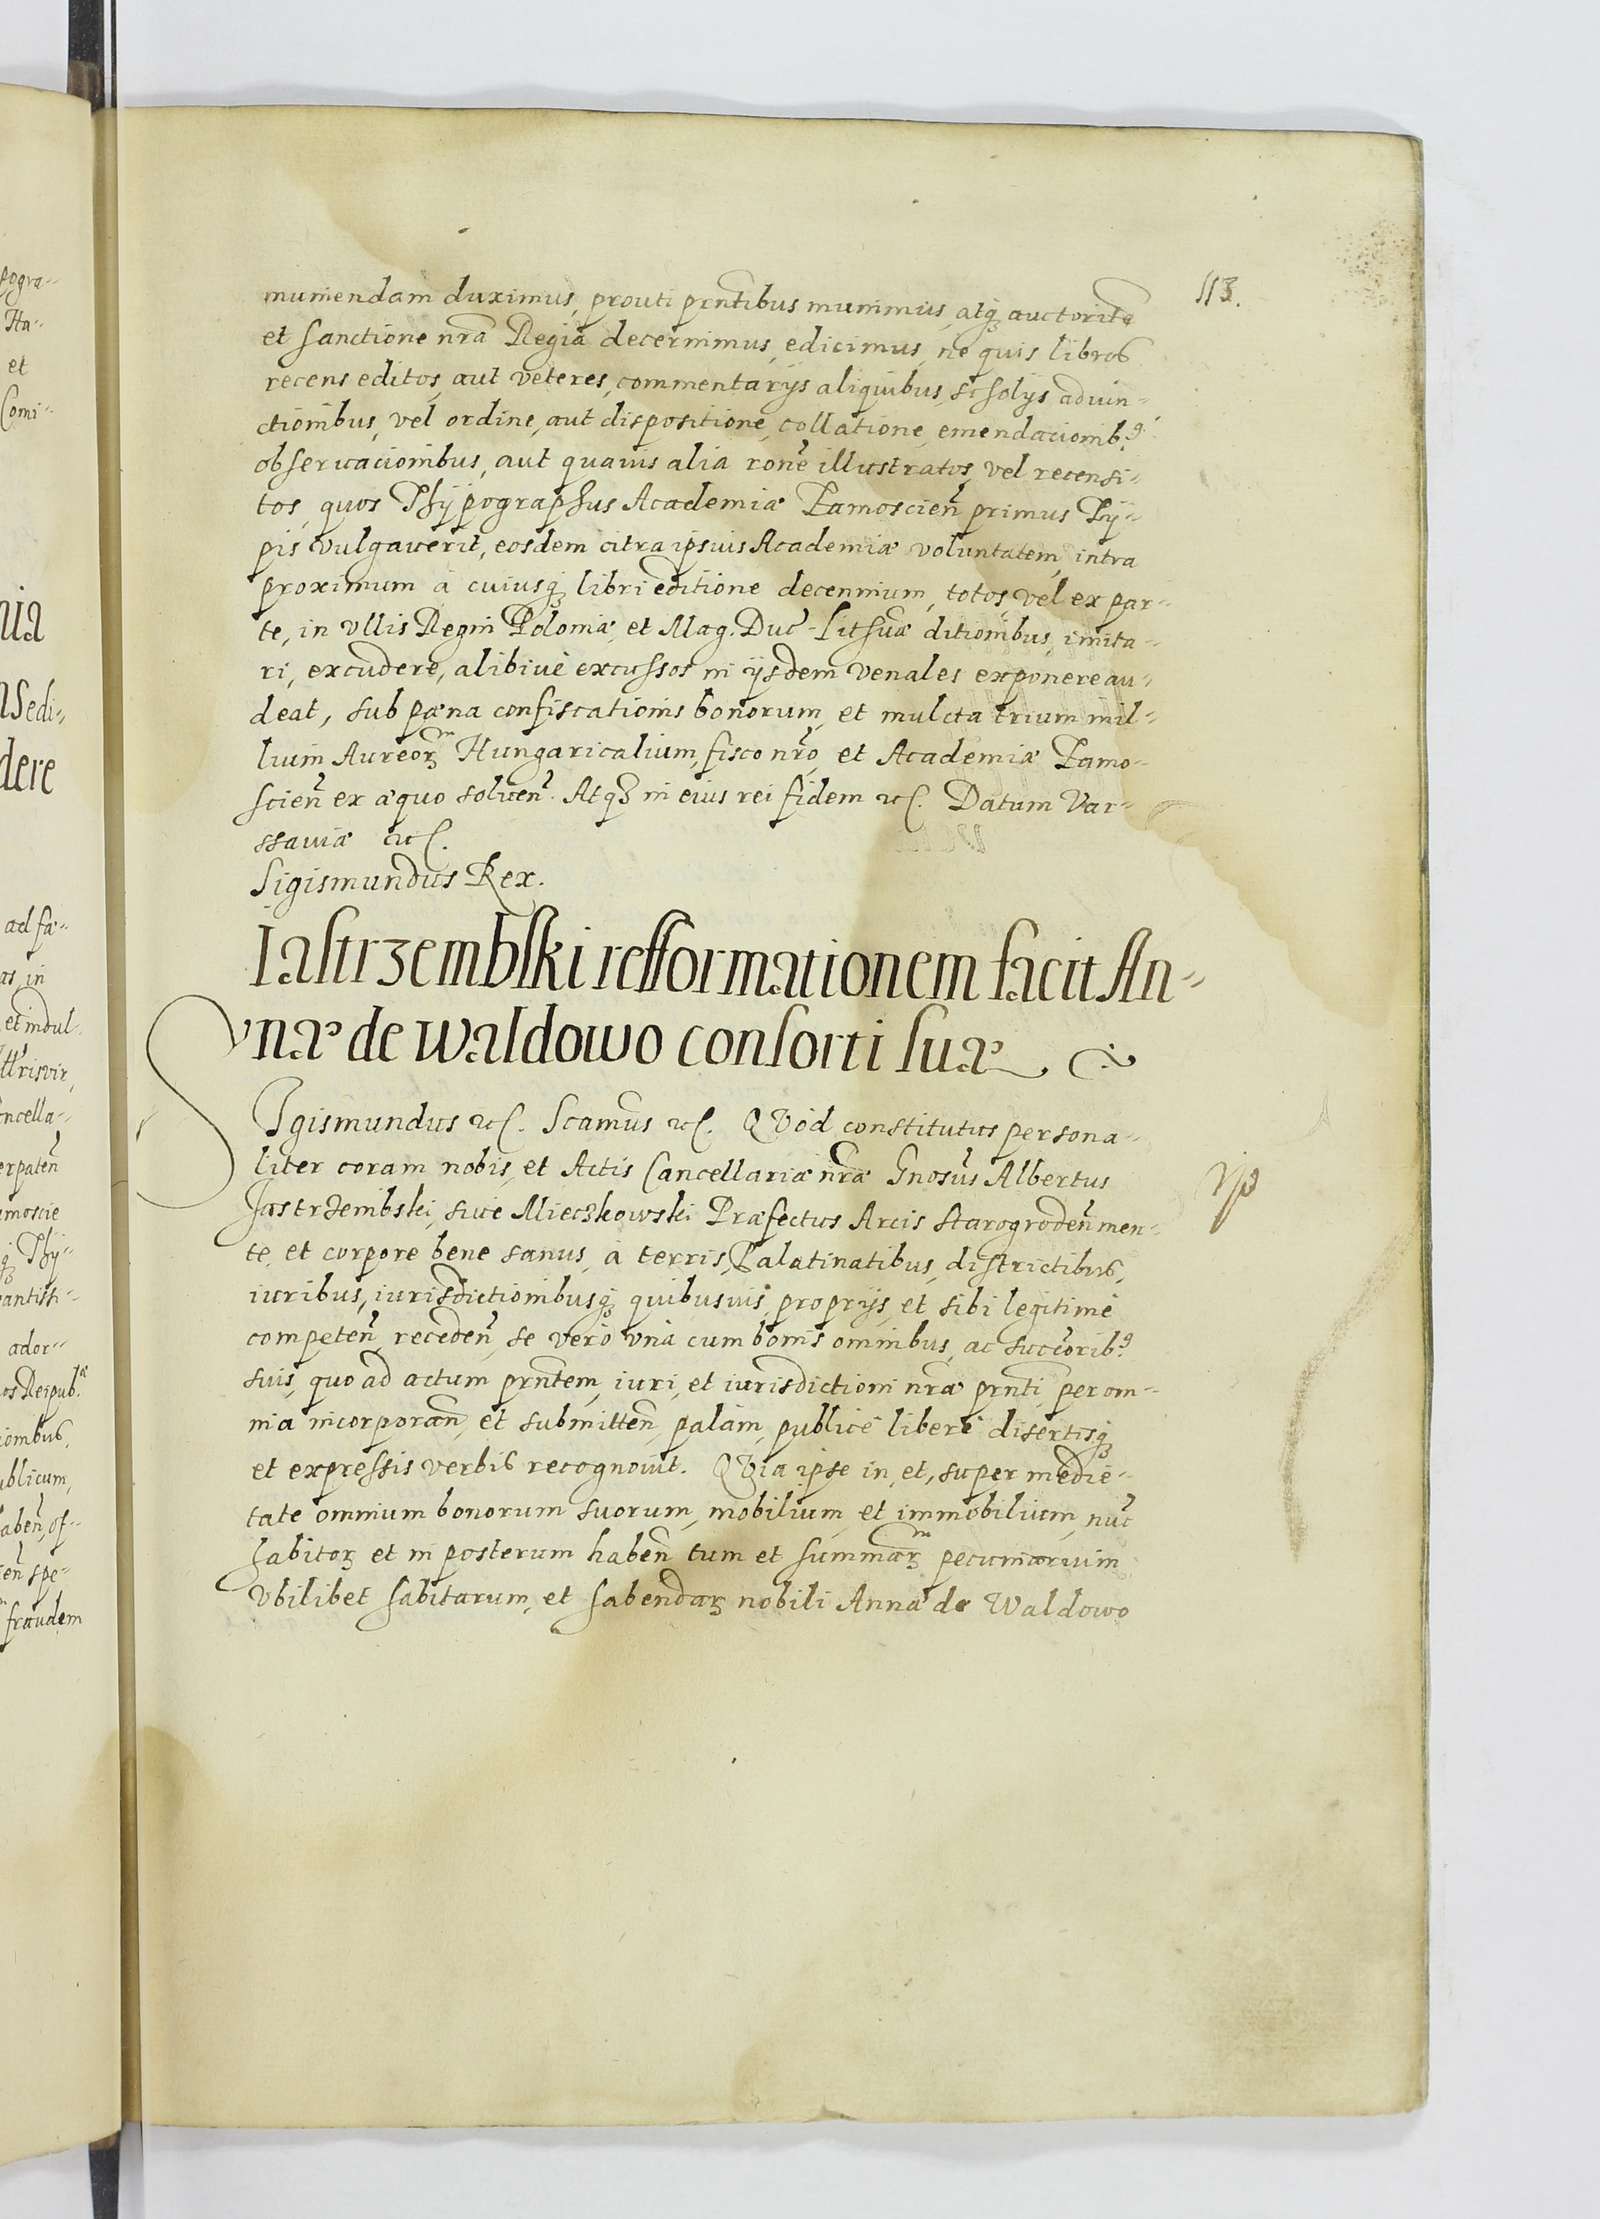 113.
muniendam duximus, prouti prñtibus munimus, atq; auctoritẽ
et sanctione nrã Regia decernimus, edicimus, ne quis libros
recens editos, aut veteres, commentarijs aliquibus, scholijs adiun-
ctionibus, vel ordine, aut dispositione, collatione, emendacionib9
obseruacionibus, aut quauis alia ronẽ illustratos, vel recensi-
tos, quos Thÿpographus Academiæ Zamoscieñ primus Tÿ-
pis vulgauerit, eosdem citra ipsius Academiæ voluntatem, intra
proximum à cuiusq; libri editione decennium, totos, vel ex par-
te, in vllis Regni Poloniæ, et Mag. Duc̃ Lithuæ ditionibus, imita-
ri, excudere, alibiuè excussos in ijsdem venales exponere au-
deat, sub pœna confiscationis bonorum, et mulcta trium mil-
lium Aureorꝝ Hungaricalium, fisco nrõ, et Academiæ Zamo-
scieñ ex æquo soluen̄. Atq; in eius rei fidem etc. Datum Var-
ssauiæ etc.
Sigismundus Rex.
Iastrzembski refformationem facit An-
næ de Waldowo consorti suæ
SIgismundus etc. Scamus etc. QVod constitutus persona-
liter coram nobis, et Actis Cancellariæ nræ Gnosus Albertus
Jastrzembski, siue Mieczkowski Præfectus Arcis Starogrodeñ men-
te, et corpore bene sanus, à terris, Palatinatibus, districtibus,
iuribus, iurisdictionibusq; quibusuis, proprijs, et sibi legitimè
competeñ, recedeñ, se verò vnà cum bonis omnibus, ac succorib9
suis, quo ad actum prñtem, iuri, et iurisdictioni nræ prñti, per om-
nia incorporañ, et submitteñ, palàm, publicè liberè disertisq;
et expressis verbis recognouit. QVia ipse in, et, super medie-
tate omnium bonorum suorum, mobilium, et immobilium, nuc̃
habitorꝝ et in posterum habeñ tum et summarꝝ pecuniarum
vbilibet habitarum, et habendarꝝ nobili Annæ de Waldowo